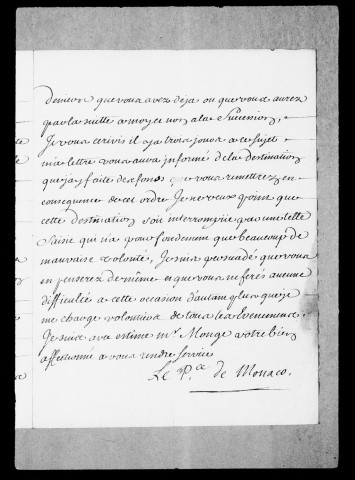 deniers que vous avez déja ou que vous aurez
par la suitte a moy et non a la Succession,
Je vous ecrivis il a ja trois jours a ce sujet
ma lettre vous aura informé de la destination
que j'ay faite des fonds que vous remettrez en
consequence de cet ordre Je ne veux point que
cette destination soit interrompüe par une telle
Saisie qui n'a pour fondement que beaucoup de
mauvaise volonté, Je suis persuadé que vous
en penserez de même et que vous ne ferés aucune
difficultée a cette occasion d'autant plus que je
me charge volontiers de tous les Evenements.
Je suis avec estime mr. Monge votre bien
affectionné a vous rendre service
Le P.ce de Monaco.